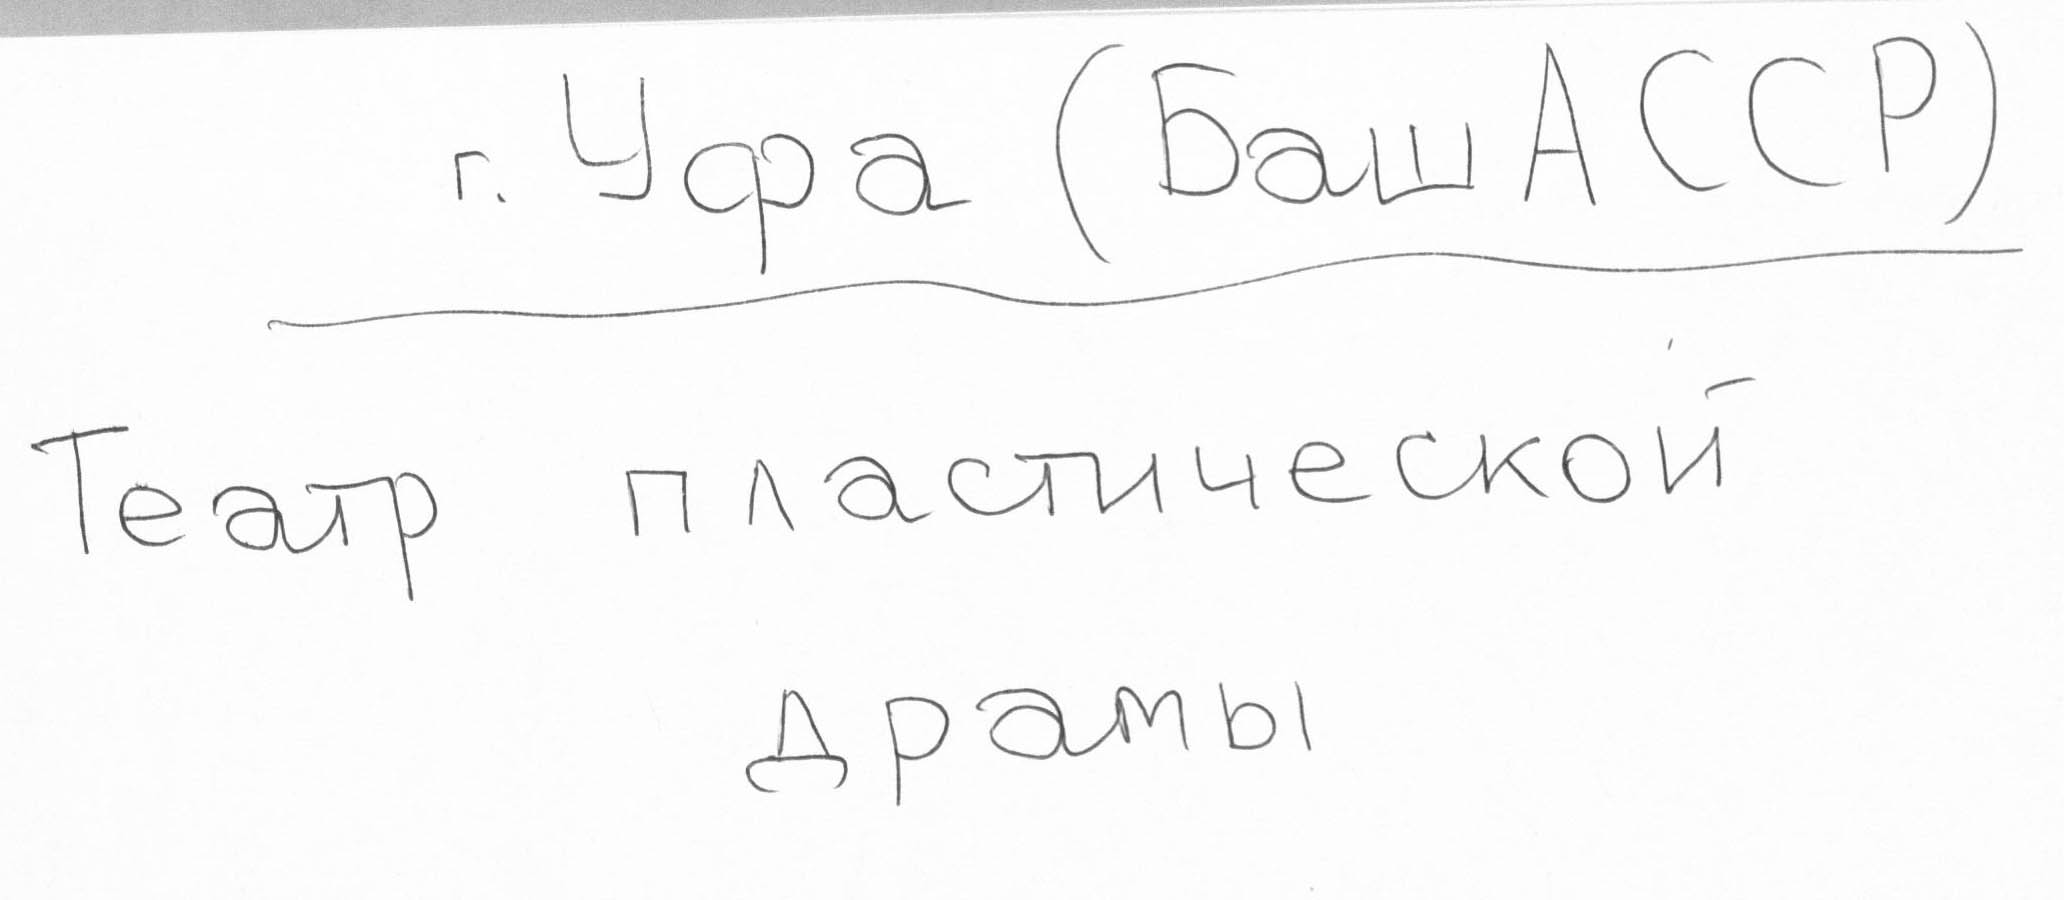 г. Уфа (БашАССР)
Театр пластической
драмы